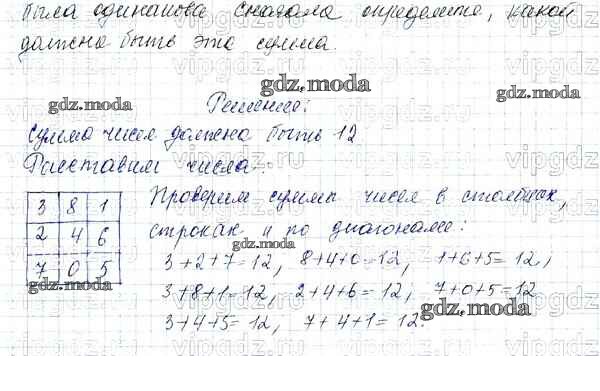 была одинакова сначала определите, какой
должна быть эта сумма.
gdz.moda
gdz.moda
Решение:
Сумма чисел должна быть 12
Расставим числа:
3 8 1
2 4 6
7 0 5
Проверим суммы чисел в столбцах,
строках и по диагонали:
gdz.moda
3+2+7=12, 8+4+0=12, 1+6+5=12,
gdz.moda
3+8+1=12, 2+4+6=12, 7+0+5=12
gdz.moda
3+4+5=12, 7+4+1=12.
gdz.moda